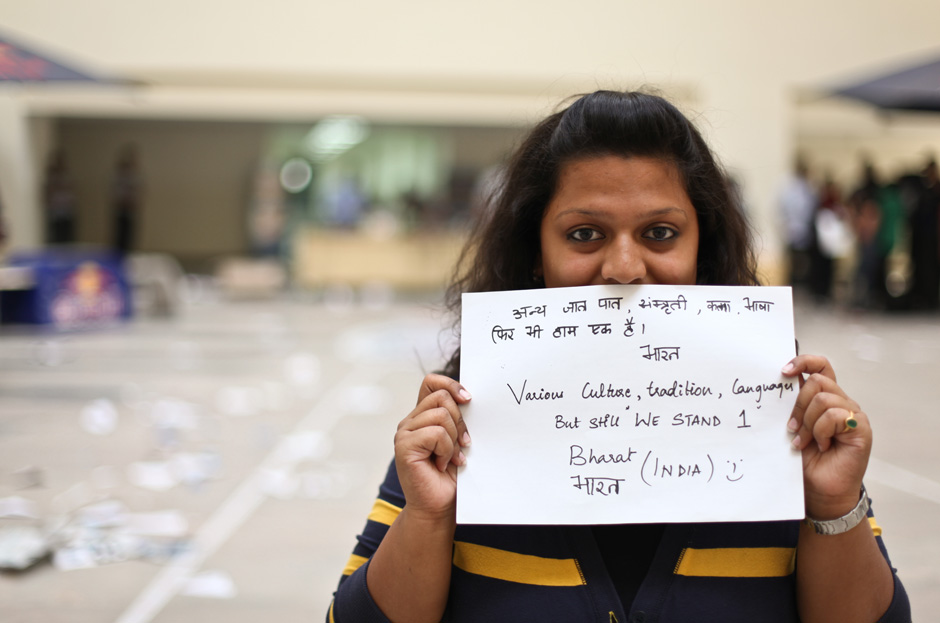 अन्य जात पात, संस्कृती, कला, भाषा
फिर भी हाम एक है।
भारत
Various Culture, tradition, Languages
But still "WE STAND 1"
Bharat (INDIA) :)
भारत